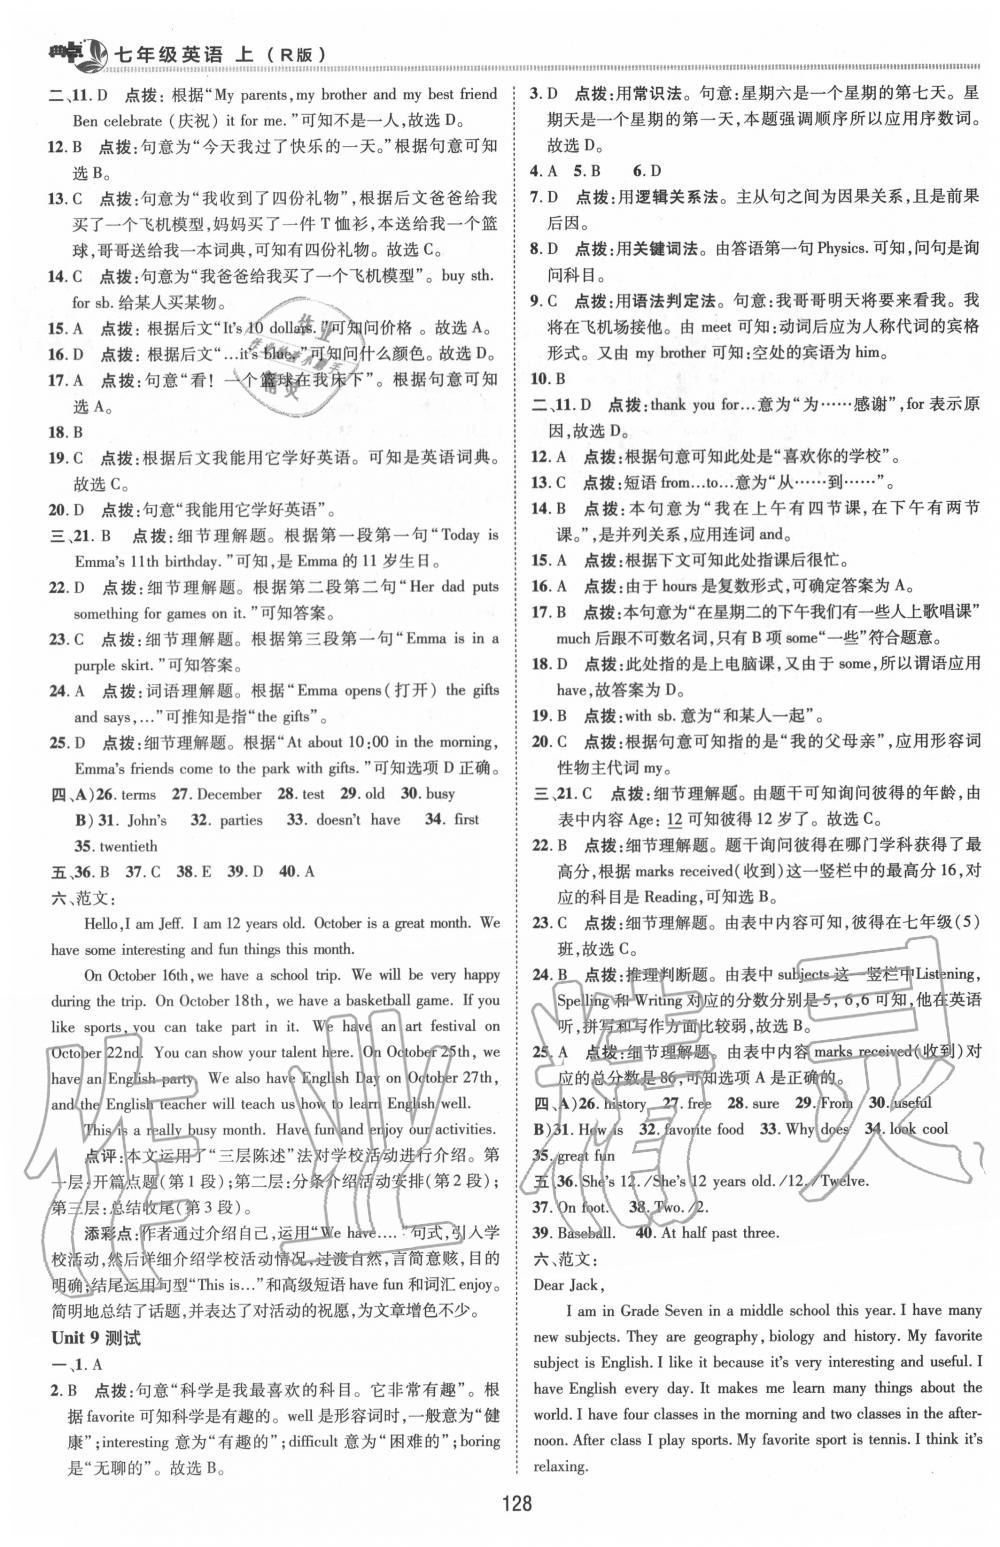 典点 七年级英语 上（R版）
二、11. D　点拨：根据“My parents, my brother and my best friend
Ben celebrate（庆祝）it for me.”可知不是一人，故选 D。
12. B　点拨：句意为“今天我过了快乐的一天。”根据句意可知
选 B。
13. C　点拨：句意为“我收到了四份礼物”，根据后文爸爸给我
买了一个飞机模型，妈妈买了一件 T 恤衫，本送给我一个篮
球，哥哥送给我一本词典，可知有四份礼物。故选 C。
14. C　点拨：句意为“我爸爸给我买了一个飞机模型”。buy sth.
for sb. 给某人买某物。
15. A　点拨：根据后文“It's 10 dollars.”可知问价格 。故选 A。
16. D　点拨：根据后文“…it's blue.”可知问什么颜色。故选 D。
17. A　点拨：句意“看！一个篮球在我床下”。根据句意可知
选 A。
18. B
19. C　点拨：根据后文我能用它学好英语。可知是英语词典。
故选 C。
20. D　点拨：句意“我能用它学好英语”。
三、21. B　点拨：细节理解题。根据第一段第一句“Today is
Emma's 11th birthday.”可知，是 Emma 的 11 岁生日。
22. D　点拨：细节理解题。根据第二段第二句“Her dad puts
something for games on it.”可知答案。
23. C　点拨：细节理解题。根据第三段第一句“Emma is in a
purple skirt.”可知答案。
24. A　点拨：词语理解题。根据“Emma opens（打开）the gifts
and says, …”可推知是指“the gifts”。
25. D　点拨：细节理解题。根据“At about 10:00 in the morning,
Emma's friends come to the park with gifts.”可知选项 D 正确。
四、A）26. terms　27. December　28. test　29. old　30. busy
B）31. John's　32. parties　33. doesn't have　34. first
35. twentieth
五、36. B　37. C　38. E　39. D　40. A
六、范文：
Hello, I am Jeff. I am 12 years old. October is a great month. We
have some interesting and fun things this month.
On October 16th, we have a school trip. We will be very happy
during the trip. On October 18th, we have a basketball game. If you
like sports, you can take part in it. We have an art festival on
October 22nd. You can show your talent here. On October 25th, we
have an English party. We also have English Day on October 27th,
and the English teacher will teach us how to learn English well.
This is a really busy month. Have fun and enjoy our activities.
点评：本文运用了“三层陈述”法对学校活动进行介绍。第
一层：开篇点题（第 1 段）；第二层：分条介绍活动安排（第 2 段）；
第三层：总结收尾（第 3 段）。
添彩点：作者通过介绍自己，运用“We have….”句式，引入学
校活动，然后详细介绍学校活动情况，过渡自然，言简意赅，目的
明确；结尾运用句型“This is…”和高级短语 have fun 和词汇 enjoy。
简明地总结了话题，并表达了对活动的祝愿，为文章增色不少。
Unit 9 测试
一、1. A
2. B　点拨：句意“科学是我最喜欢的科目。它非常有趣”。根
据 favorite 可知科学是有趣的。well 是形容词时，一般意为“健
康”；interesting 意为“有趣的”；difficult 意为“困难的”；boring
是“无聊的”。故选 B。
3. D　点拨：用常识法。句意：星期六是一个星期的第七天。星
期天是一个星期的第一天，本题强调顺序所以应用序数词。
故选 D。
4. A　5. B　6. D
7. D　点拨：用逻辑关系法。主从句之间为因果关系，且是前果
后因。
8. D　点拨：用关键词法。由答语第一句 Physics. 可知，问句是询
问科目。
9. C　点拨：用语法判定法。句意：我哥哥明天将要来看我。我
将在飞机场接他。由 meet 可知：动词后应为人称代词的宾格
形式。又由 my brother 可知：空处的宾语为 him。
10. B
二、11. D　点拨：thank you for…意为“为……感谢”，for 表示原
因，故选 D。
12. A　点拨：根据句意可知此处是“喜欢你的学校”。
13. C　点拨：短语 from…to…意为“从……到……”。
14. B　点拨：本句意为“我在上午有四节课，在下午有两节
课。”，是并列关系，应用连词 and。
15. A　点拨：根据下文可知此处指课后很忙。
16. A　点拨：由于 hours 是复数形式，可确定答案为 A。
17. B　点拨：本句意为“在星期二的下午我们有一些人上歌唱课”
much 后跟不可数名词，只有 B 项 some“一些”符合题意。
18. D　点拨：此处指的是上电脑课，又由于 some，所以谓语应用
have，故答案为 D。
19. B　点拨：with sb. 意为“和某人一起”。
20. C　点拨：根据句意可知指的是“我的父母亲”，应用形容词
性物主代词 my。
三、21. C　点拨：细节理解题。由题干可知询问彼得的年龄，由
表中内容 Age：12 可知彼得 12 岁了。故选 C。
22. B　点拨：细节理解题。题干询问彼得在哪门学科获得了最
高分，根据 marks received（收到）这一竖栏中的最高分 16，对
应的科目是 Reading，可知选 B。
23. C　点拨：细节理解题。由表中内容可知，彼得在七年级（5）
班，故选 C。
24. B　点拨：推理判断题。由表中 subjects 这一竖栏中 Listening，
Spelling 和 Writing 对应的分数分别是 5，6，6 可知，他在英语
听，拼写和写作方面比较弱，故选 B。
25. A　点拨：细节理解题。由表中内容 marks received（收到）对
应的总分数是 86，可知选项 A 是正确的。
四、A）26. history　27. free　28. sure　29. From　30. useful
B）31. How is　32. favorite food　33. Why does　34. look cool
35. great fun
五、36. She's 12. /She's 12 years old. /12. /Twelve.
37. On foot.　38. Two. /2.
39. Baseball.　40. At half past three.
六、范文：
Dear Jack,
I am in Grade Seven in a middle school this year. I have many
new subjects. They are geography, biology and history. My favorite
subject is English. I like it because it's very interesting and useful. I
have English every day. It makes me learn many things about the
world. I have four classes in the morning and two classes in the after-
noon. After class I play sports. My favorite sport is tennis. I think it's
relaxing.
128
作业精灵